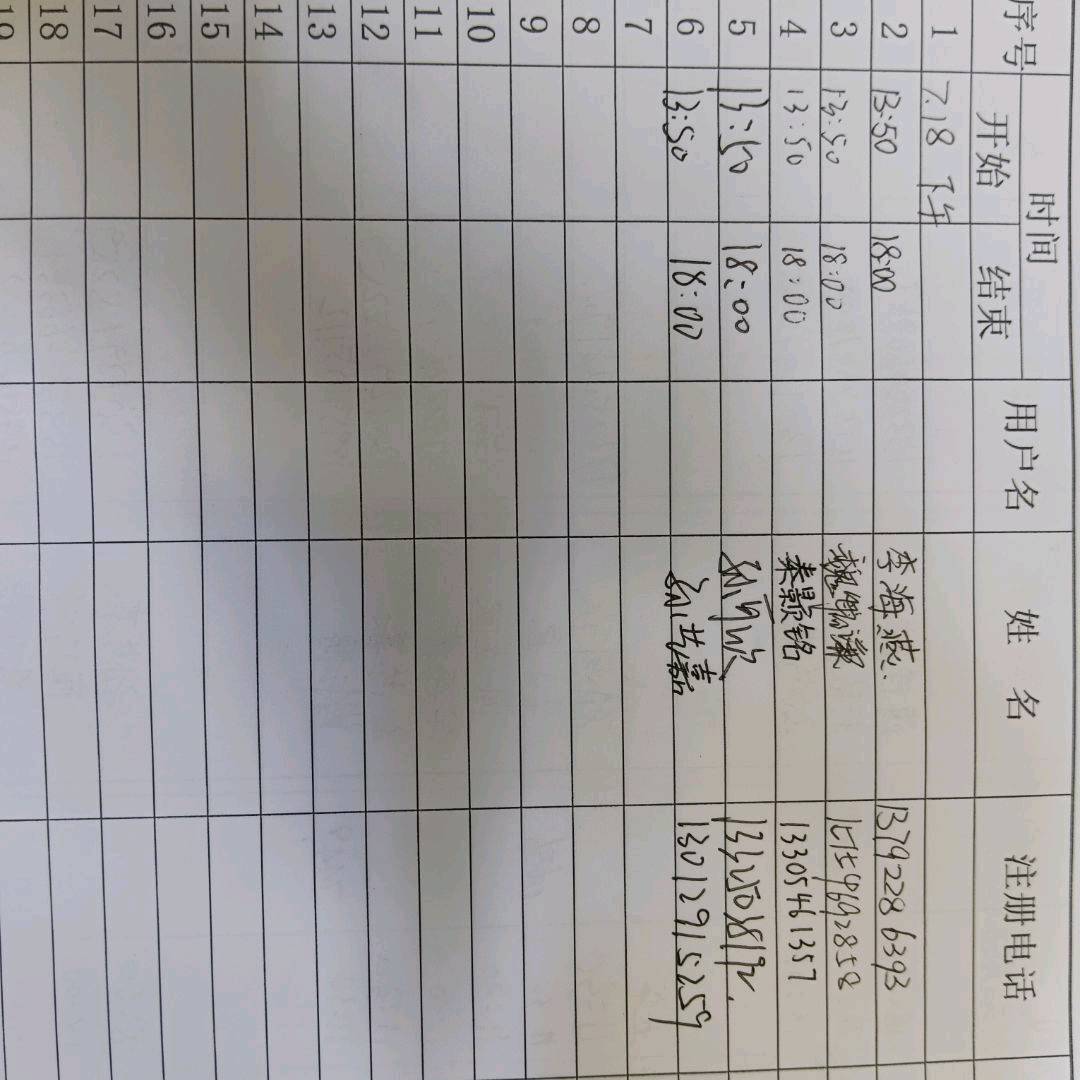 序号 时间 用户名 姓 名 注册电话
开始 结束
1 7.18 下午
2 13:50 18:00 李海燕 13792286393
3 13:50 18:00
4 13:50 18:00 秦颢铭 13305461357
5 13:50 18:00
6 13:50 18:00 13012915259
7
8
9
10
11
12
13
14
15
16
17
18
19